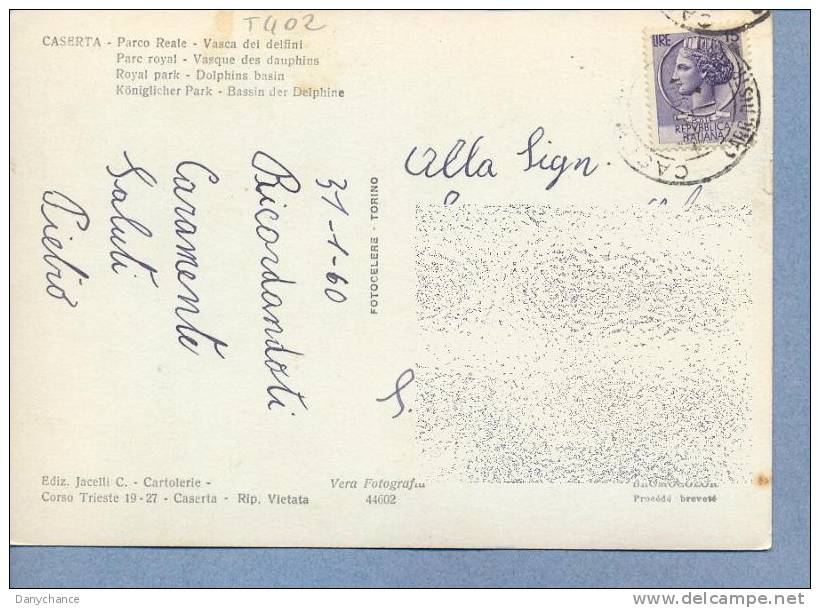 T402
CASERTA - Parco Reale - Vasca dei delfini
Parc royal - Vasque des dauphins
Royal park - Dolphins basin
Königlicher Park - Bassin der Delphine
LIRE 15
REPVBBLICA
ITALIANA
31-1-60
Ricordandoti
Caramente
Saluti
Pietro
FOTOCELERE - TORINO
Alla Sign.
Ediz. Jacelli C. - Cartolerie -
Corso Trieste 19-27 - Caserta - Rip. Vietata
Vera Fotografia
44602
BROMOCOLOR
Procédé breveté
Danychance
delcampe.net